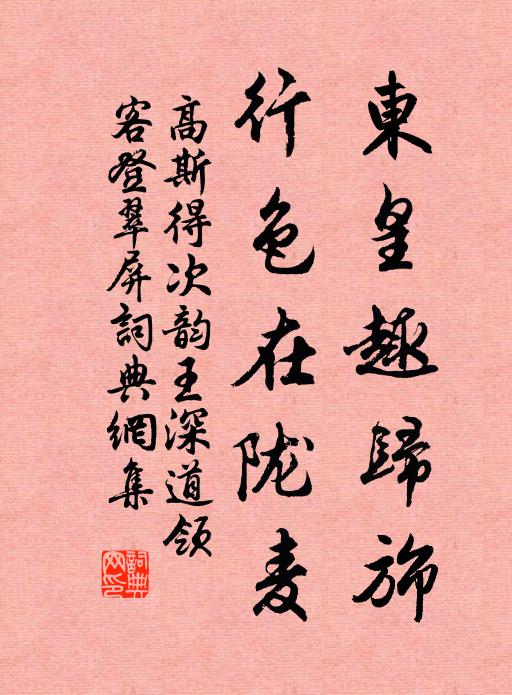 東皇趣歸旆
行色在陇麦
高斯得次韵王深道领
客登翠屏詞典網集
詞典網印